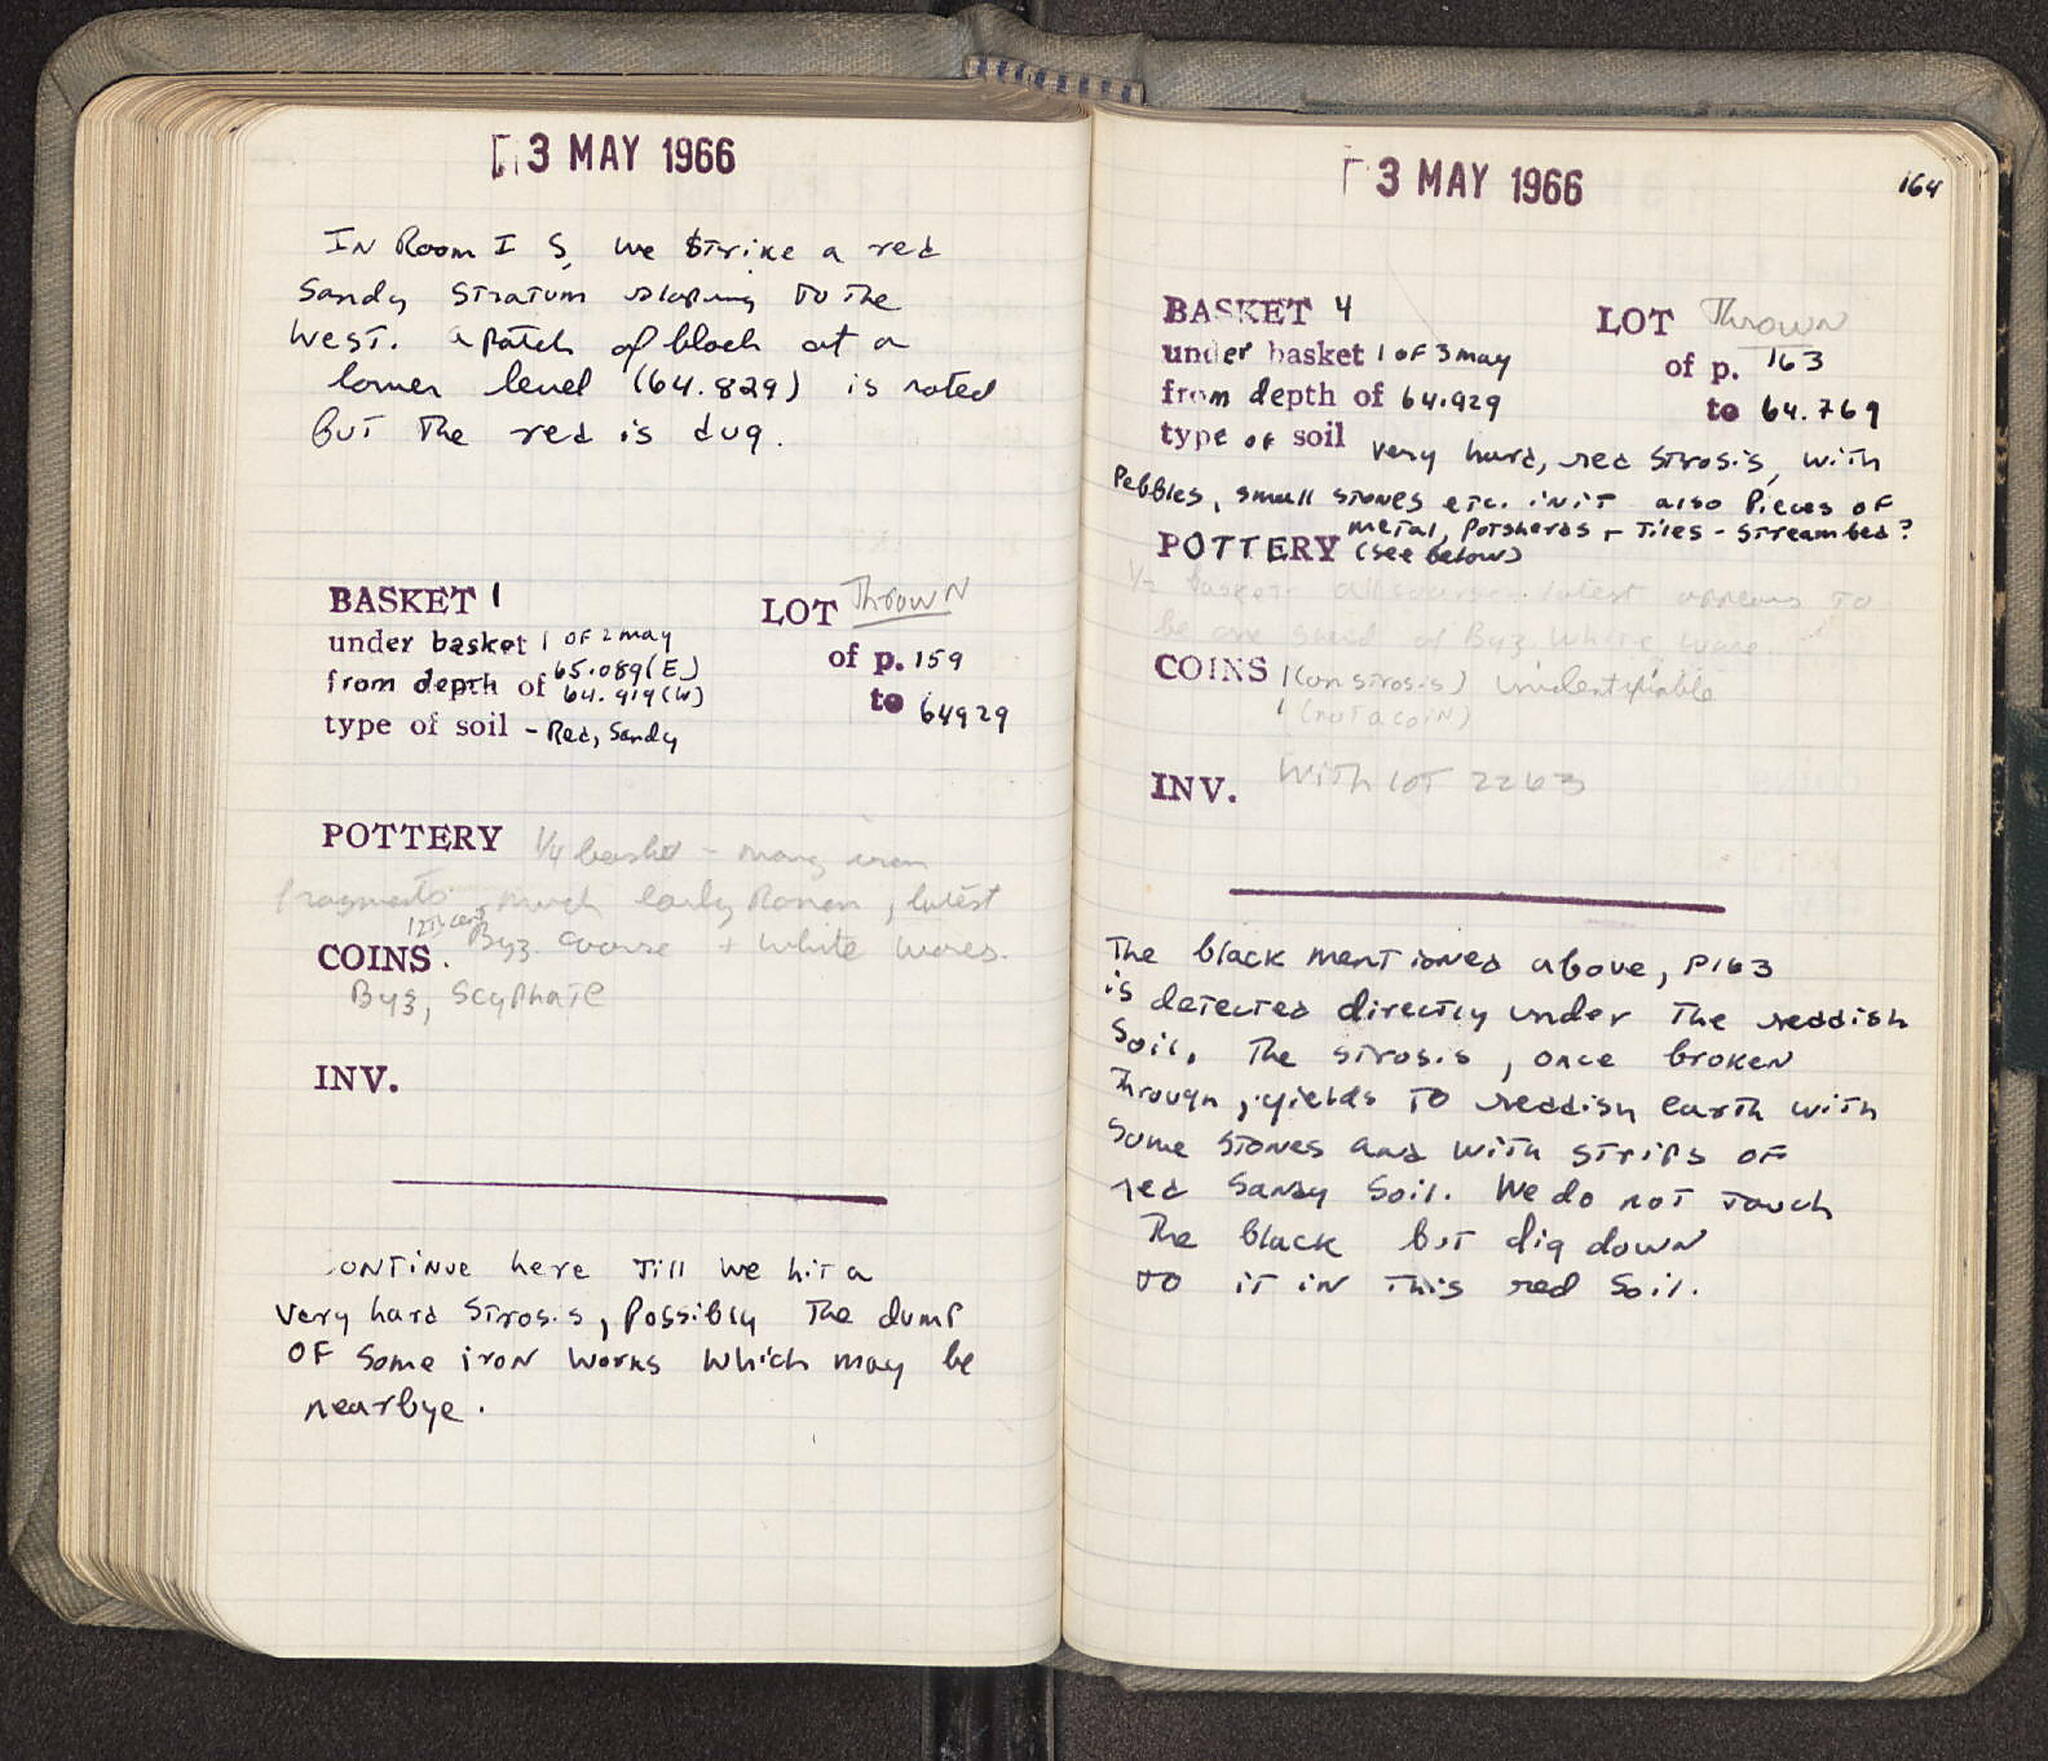 3 MAY 1966
In Room I S, we strike a red
sandy stratum sloping to the
west. a patch of black at a
lower level (64.829) is noted
but the red is dug.
BASKET 1
LOT Thrown
under basket 1 of 2 may
of p. 159
from depth of 65.089(E)
64.919(W)
to 64929
type of soil - Red, Sandy
POTTERY 1/4 basket - many iron
fragments much early Roman, latest
12th cent Byz. coarse + white wares.
COINS.
Byz, Scyphate
INV.
ontinue here till we hit a
very hard strosis, possibly the dump
of some iron works which may be
nearbye.
3 MAY 1966
164
BASKET 4
LOT Thrown
under basket 1 of 3 may
of p. 163
from depth of 64.929
to 64.769
type of soil very hard, red strosis, with
Pebbles, small stones etc. in it also pieces of
metal, potsherds + tiles - streambed?
POTTERY (see below)
1/2 basket - all coarse. latest appears to
be one sherd of Byz. white ware.
COINS 1 (on strosis) unidentifiable
1 (not a coin)
INV. With lot 2263
The black mentioned above, P163
is detected directly under the reddish
soil. The strosis, once broken
through, yields to reddish earth with
some stones and with strips of
red sandy soil. We do not touch
the black but dig down
to it in this red soil.